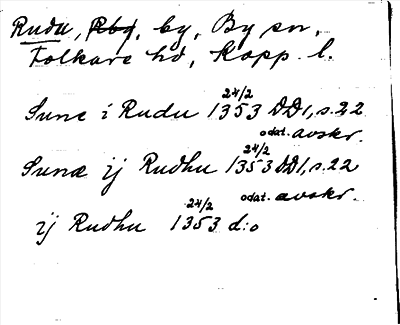 Rudu, Rby, by, By sn,
Folkare hd, Kopp. l.
Sune i Rudu 24/2 1353 DD1, s. 22
odat. avskr.
Sunæ ij Rudhu 24/2 1353 DD1, s. 22
odat. avskr.
ij Rudhu 24/2 1353 d:o